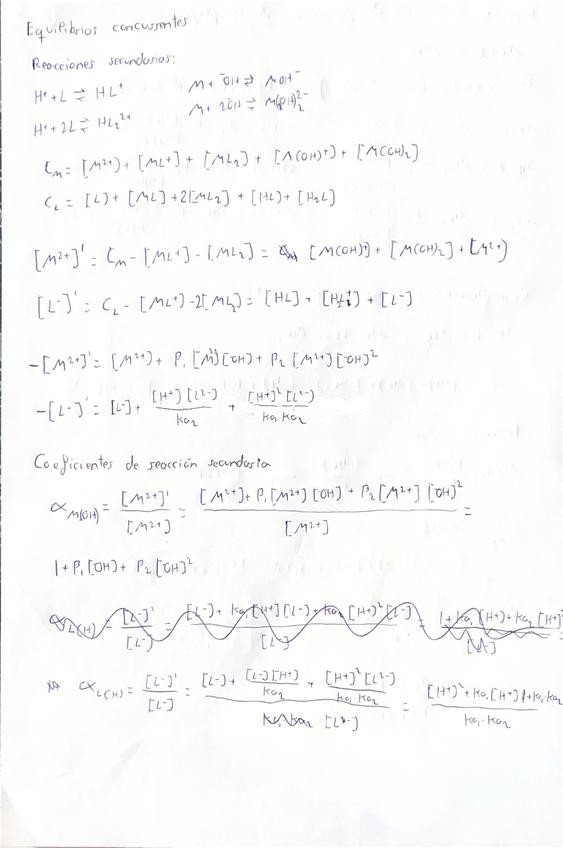 Equilibrios concurrentes
Reacciones secundarias:
H⁺ + L ⇌ HL⁺ M + ⁻OH ⇌ MOH⁻
H⁺ + 2L ⇌ HL₂²⁺ M + 2OH ⇌ M(OH)₂²⁻
Cₘ = [M²⁺) + [ML⁺] + [ML₂] + [M(OH)⁺) + [M(OH)₂]
C_L = [L) + [ML] + 2[ML₂] + [HL) + [H₂L]
[M²⁺]' = Cₘ - [ML⁺] - [ML₂] = [M(OH)⁺) + [M(OH)₂] + [M²⁺)
[L⁻]' = C_L - [ML⁺) - 2[ML₂] = [HL] + [H₂L] + [L⁻]
-[M²⁺]' = [M²⁺) + β₁ [M²⁺][⁻OH) + β₂ [M²⁺][⁻OH]²
-[L⁻]' = [L⁻] + [H⁺][L²⁻]/ka₂ + [H⁺]²[L²⁻]/ka₁ ka₂
Coeficientes de reacción secundaria
α_M(OH) = [M²⁺]'/[M²⁺] = [M²⁺] + β₁[M²⁺][OH] + β₂[M²⁺][⁻OH]²/[M²⁺] =
1 + β₁[⁻OH] + β₂[⁻OH]²
α_L(H) = [L⁻]'/[L⁻] = [L⁻) + ka₁[H⁺][L⁻) + ka₂[H⁺]²[L⁻]/[L⁻] = 1 + ka₁[H⁺) + ka₂[H⁺]²
α_L(H) = [L⁻]'/[L⁻] = [L⁻) + [L⁻)[H⁺]/ka₂ + [H⁺]²[L²⁻]/ka₁ ka₂ / [L²⁻] = [H⁺]² + ka₁[H⁺] + ka₁ ka₂/ka₁ · ka₂